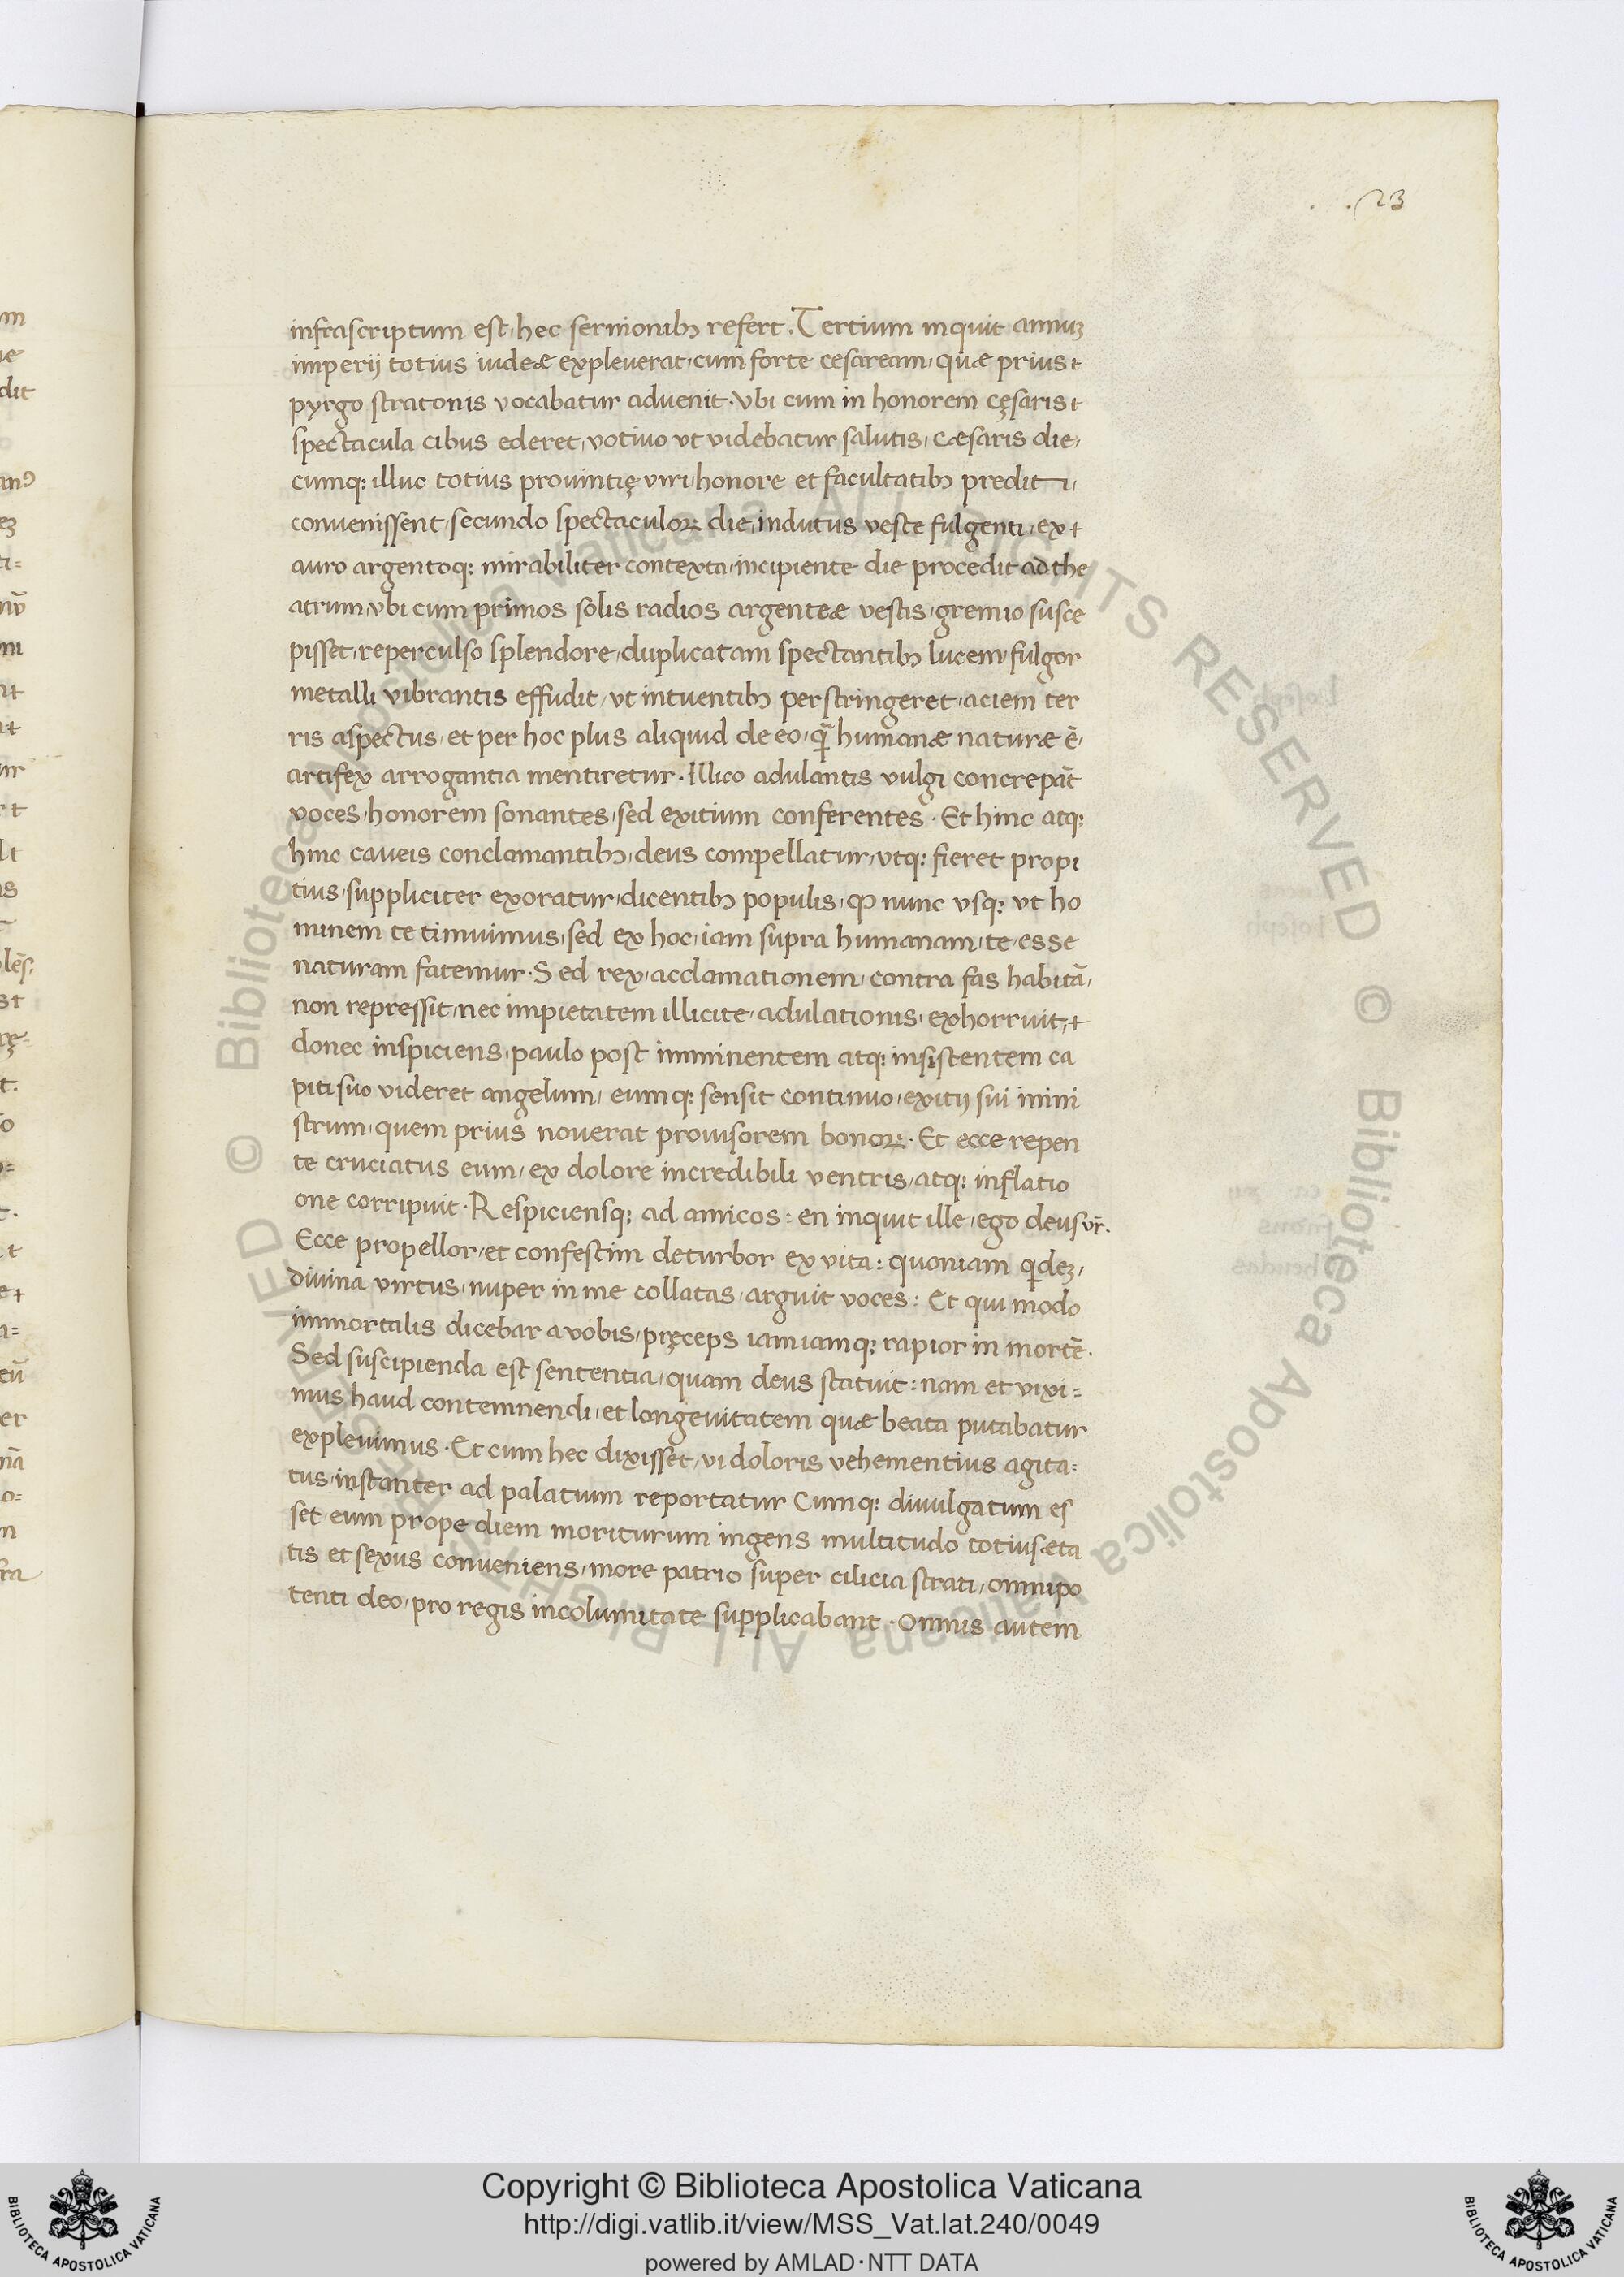 23
infrascriptum est, hec sermonibꝫ refert. Tertium inquit annuꝫ
imperij totius iudeæ expleuerat, cum forte cesaream, quæ prius
pyrgo stratonis vocabatur aduenit. vbi cum in honorem cęsaris
spectacula cibus ederet, votiuo vt videbatur salutis, cæsaris die,
cumq; illuc totius prouintię viri, honore et facultatibꝫ prediti,
conuenissent, secundo spectaculoꝝ die, indutus veste fulgenti, ex
auro argentoq; mirabiliter contexta, incipiente die procedit ad the
atrum, vbi cum primos solis radios argenteæ vestis, gremio susce
pisset, reperculso splendore, duplicatam spectantibꝫ lucem, fulgor
metalli vibrantis effudit, vt intuentibꝫ perstringeret, aciem ter
ris aspectus, et per hoc plus aliquid de eo, q̃ humanæ naturæ ē,
artifex arrogantia mentiretur. Illico adulantis vulgi concrepāt
voces, honorem sonantes, sed exitium conferentes. Et hinc atq;
hinc caueis conclamantibꝫ, deus compellatur, vtq; fieret propi
tius, suppliciter exoratur, dicentibꝫ populis, ꝙ nunc vsq; vt ho
minem te timuimus, sed ex hoc, iam supra humanam, te esse
naturam fatemur. Sed rex, acclamationem, contra fas habitā,
non repressit, nec impietatem illicite, adulationis, exhorruit,
donec inspiciens, paulo post imminentem atq; insistentem ca
piti suo videret angelum, eumq; sensit continuo, exitij sui mini
strum, quem prius nouerat prouisorem bonoꝝ. Et ecce repen
te cruciatus eum, ex dolore incredibili ventris, atq; inflatio
one corripuit. Respiciensq; ad amicos: en inquit ille, ego deus vr̄.
Ecce propellor, et confestim deturbor ex vita: quoniam qͥdeꝫ,
diuina virtus, nuper in me collatas, arguit voces: Et qui modo
immortalis dicebar a vobis, pręceps iam iamq; rapior in mortē.
Sed suscipienda est sententia, quam deus statuit: nam et vixi=
mus haud contemnendi, et longeuitatem quæ beata putabatur
expleuimus. Et cum hec dixisset, vi doloris vehementius agita=
tus, instanter ad palatium reportatur Cumq; diuulgatum es
set eum prope diem moriturum ingens multitudo totius æta
tis et sexus conueniens, more patrio super cilicia strati, omnipo
tenti deo, pro regis incolumitate supplicabant. Omnis autem
© Biblioteca Apostolica Vaticana ALL RIGHTS RESERVED
© Biblioteca Apostolica Vaticana ALL RIGHTS RESERVED
Copyright © Biblioteca Apostolica Vaticana
http://digi.vatlib.it/view/MSS_Vat.lat.240/0049
powered by AMLAD·NTT DATA
BIBLIOTECA APOSTOLICA VATICANA
BIBLIOTECA APOSTOLICA VATICANA